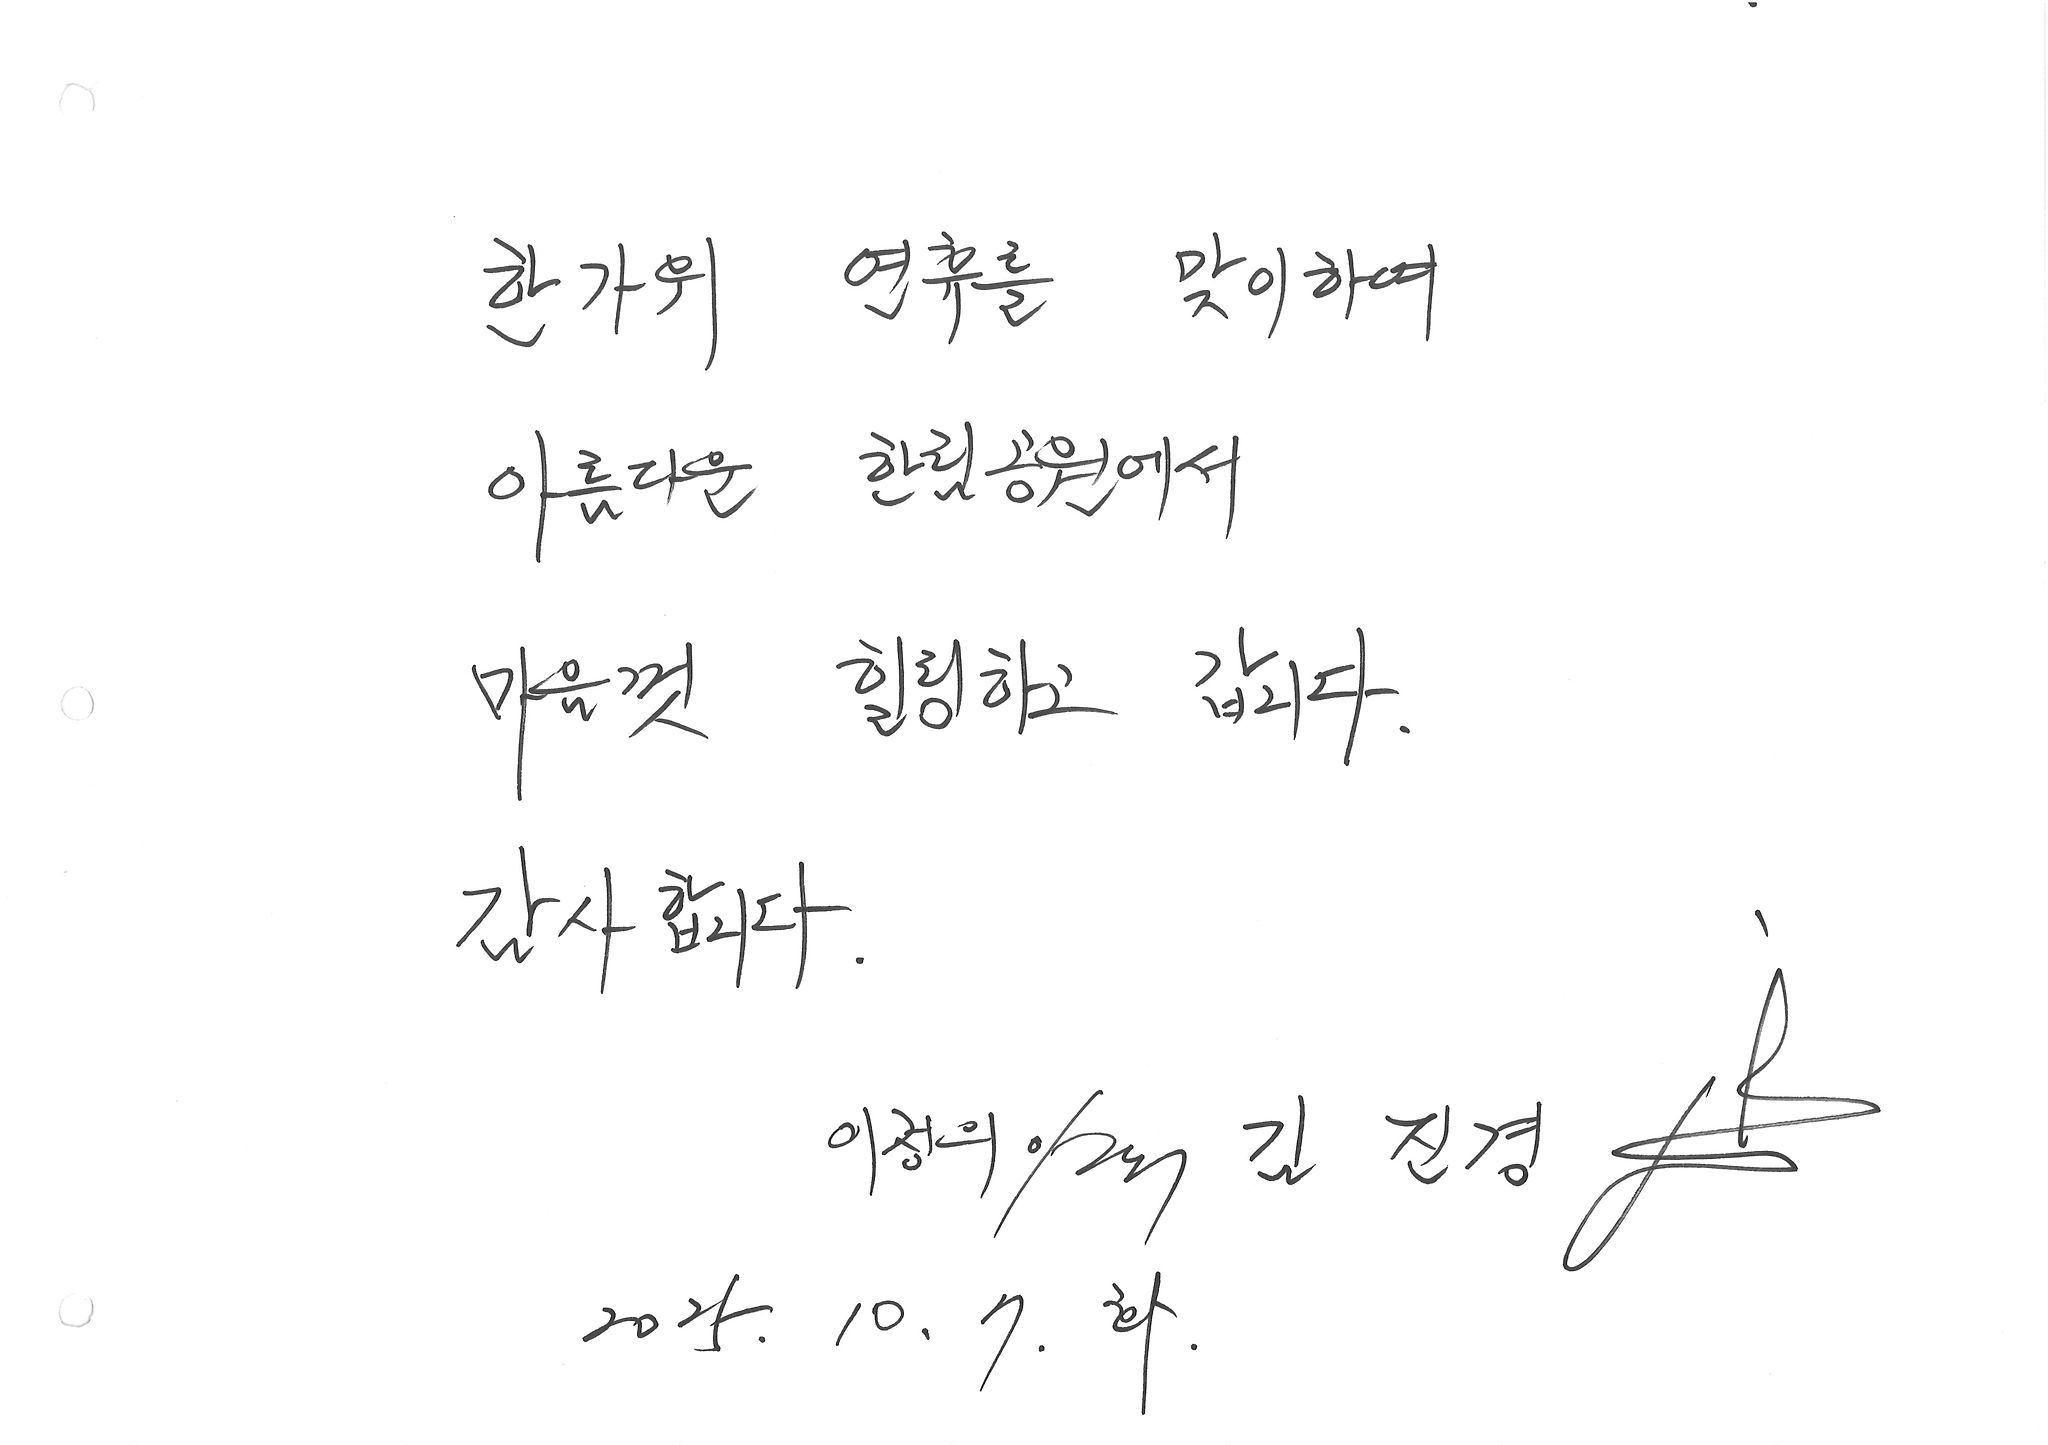 한가위 연휴를 맞이하여
아름다운 한림공원에서
마음껏 힐링하고 갑니다.
감사합니다.
이정의 김 진경
2025. 10. 7. 화.